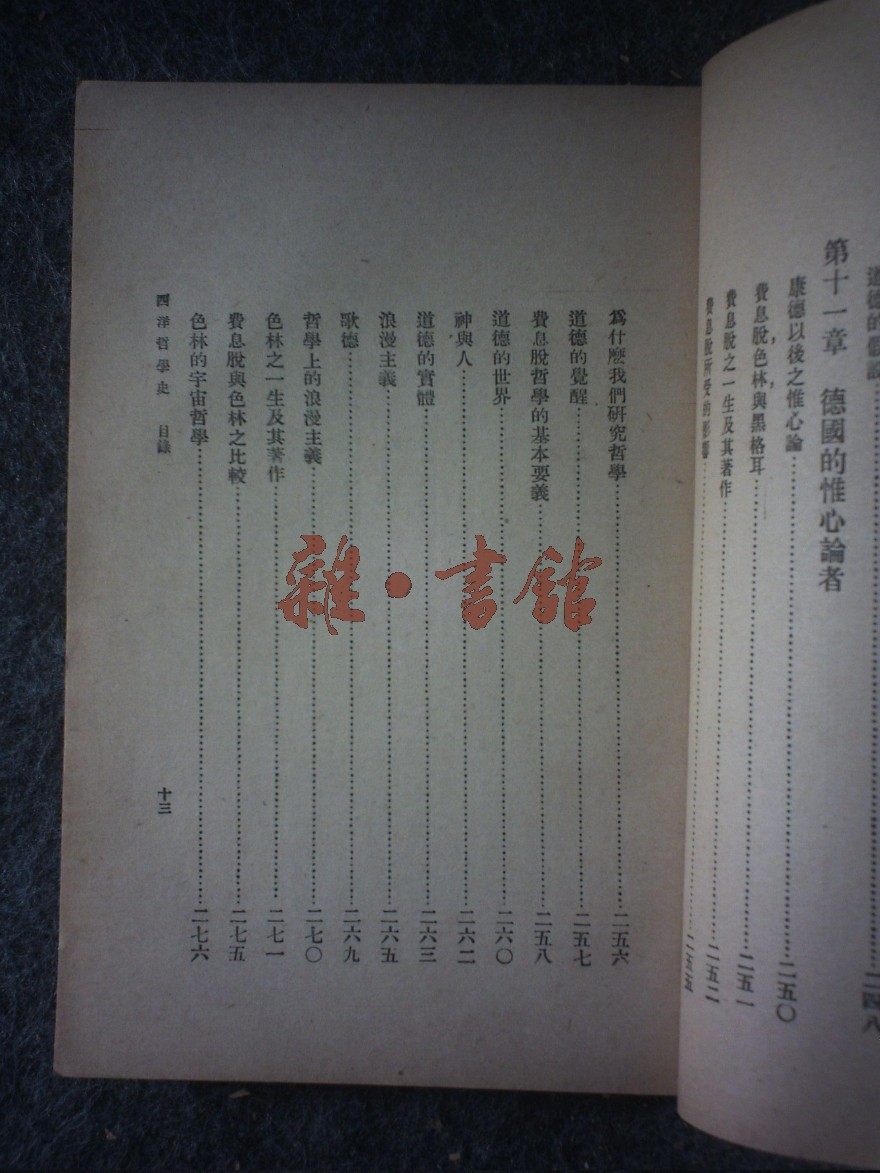 道德的
二四八
第十一章　德國的惟心論者
康德以後之惟心論……二五〇
費息脫,色林,與黑格耳……二五一
費息脫之一生及其著作……二五二
費息脫所受的影響……二五五
爲什麼我們研究哲學……二五六
道德的覺醒……二五七
費息脫哲學的基本要義……二五八
道德的世界……二六〇
神與人……二六二
道德的實體……二六三
浪漫主義……二六五
歌德……二六九
哲學上的浪漫主義……二七〇
色林之一生及其著作……二七一
費息脫與色林之比較……二七五
色林的宇宙哲學……二七六
西洋哲學史　目錄　十三
雜·書館